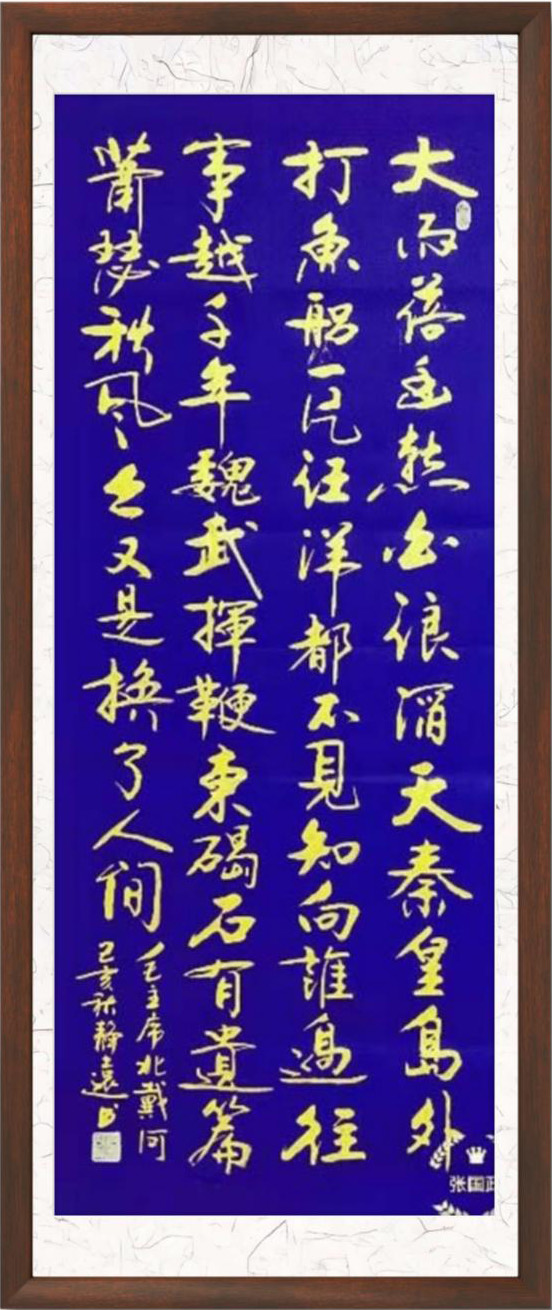 大雨落幽燕白浪滔天秦皇島外
打魚船一片汪洋都不見知向誰邊往
事越千年魏武揮鞭東碣石有遺篇
蕭瑟秋風今又是換了人間
毛主席北戴河
己亥秋靜遠書
张国政